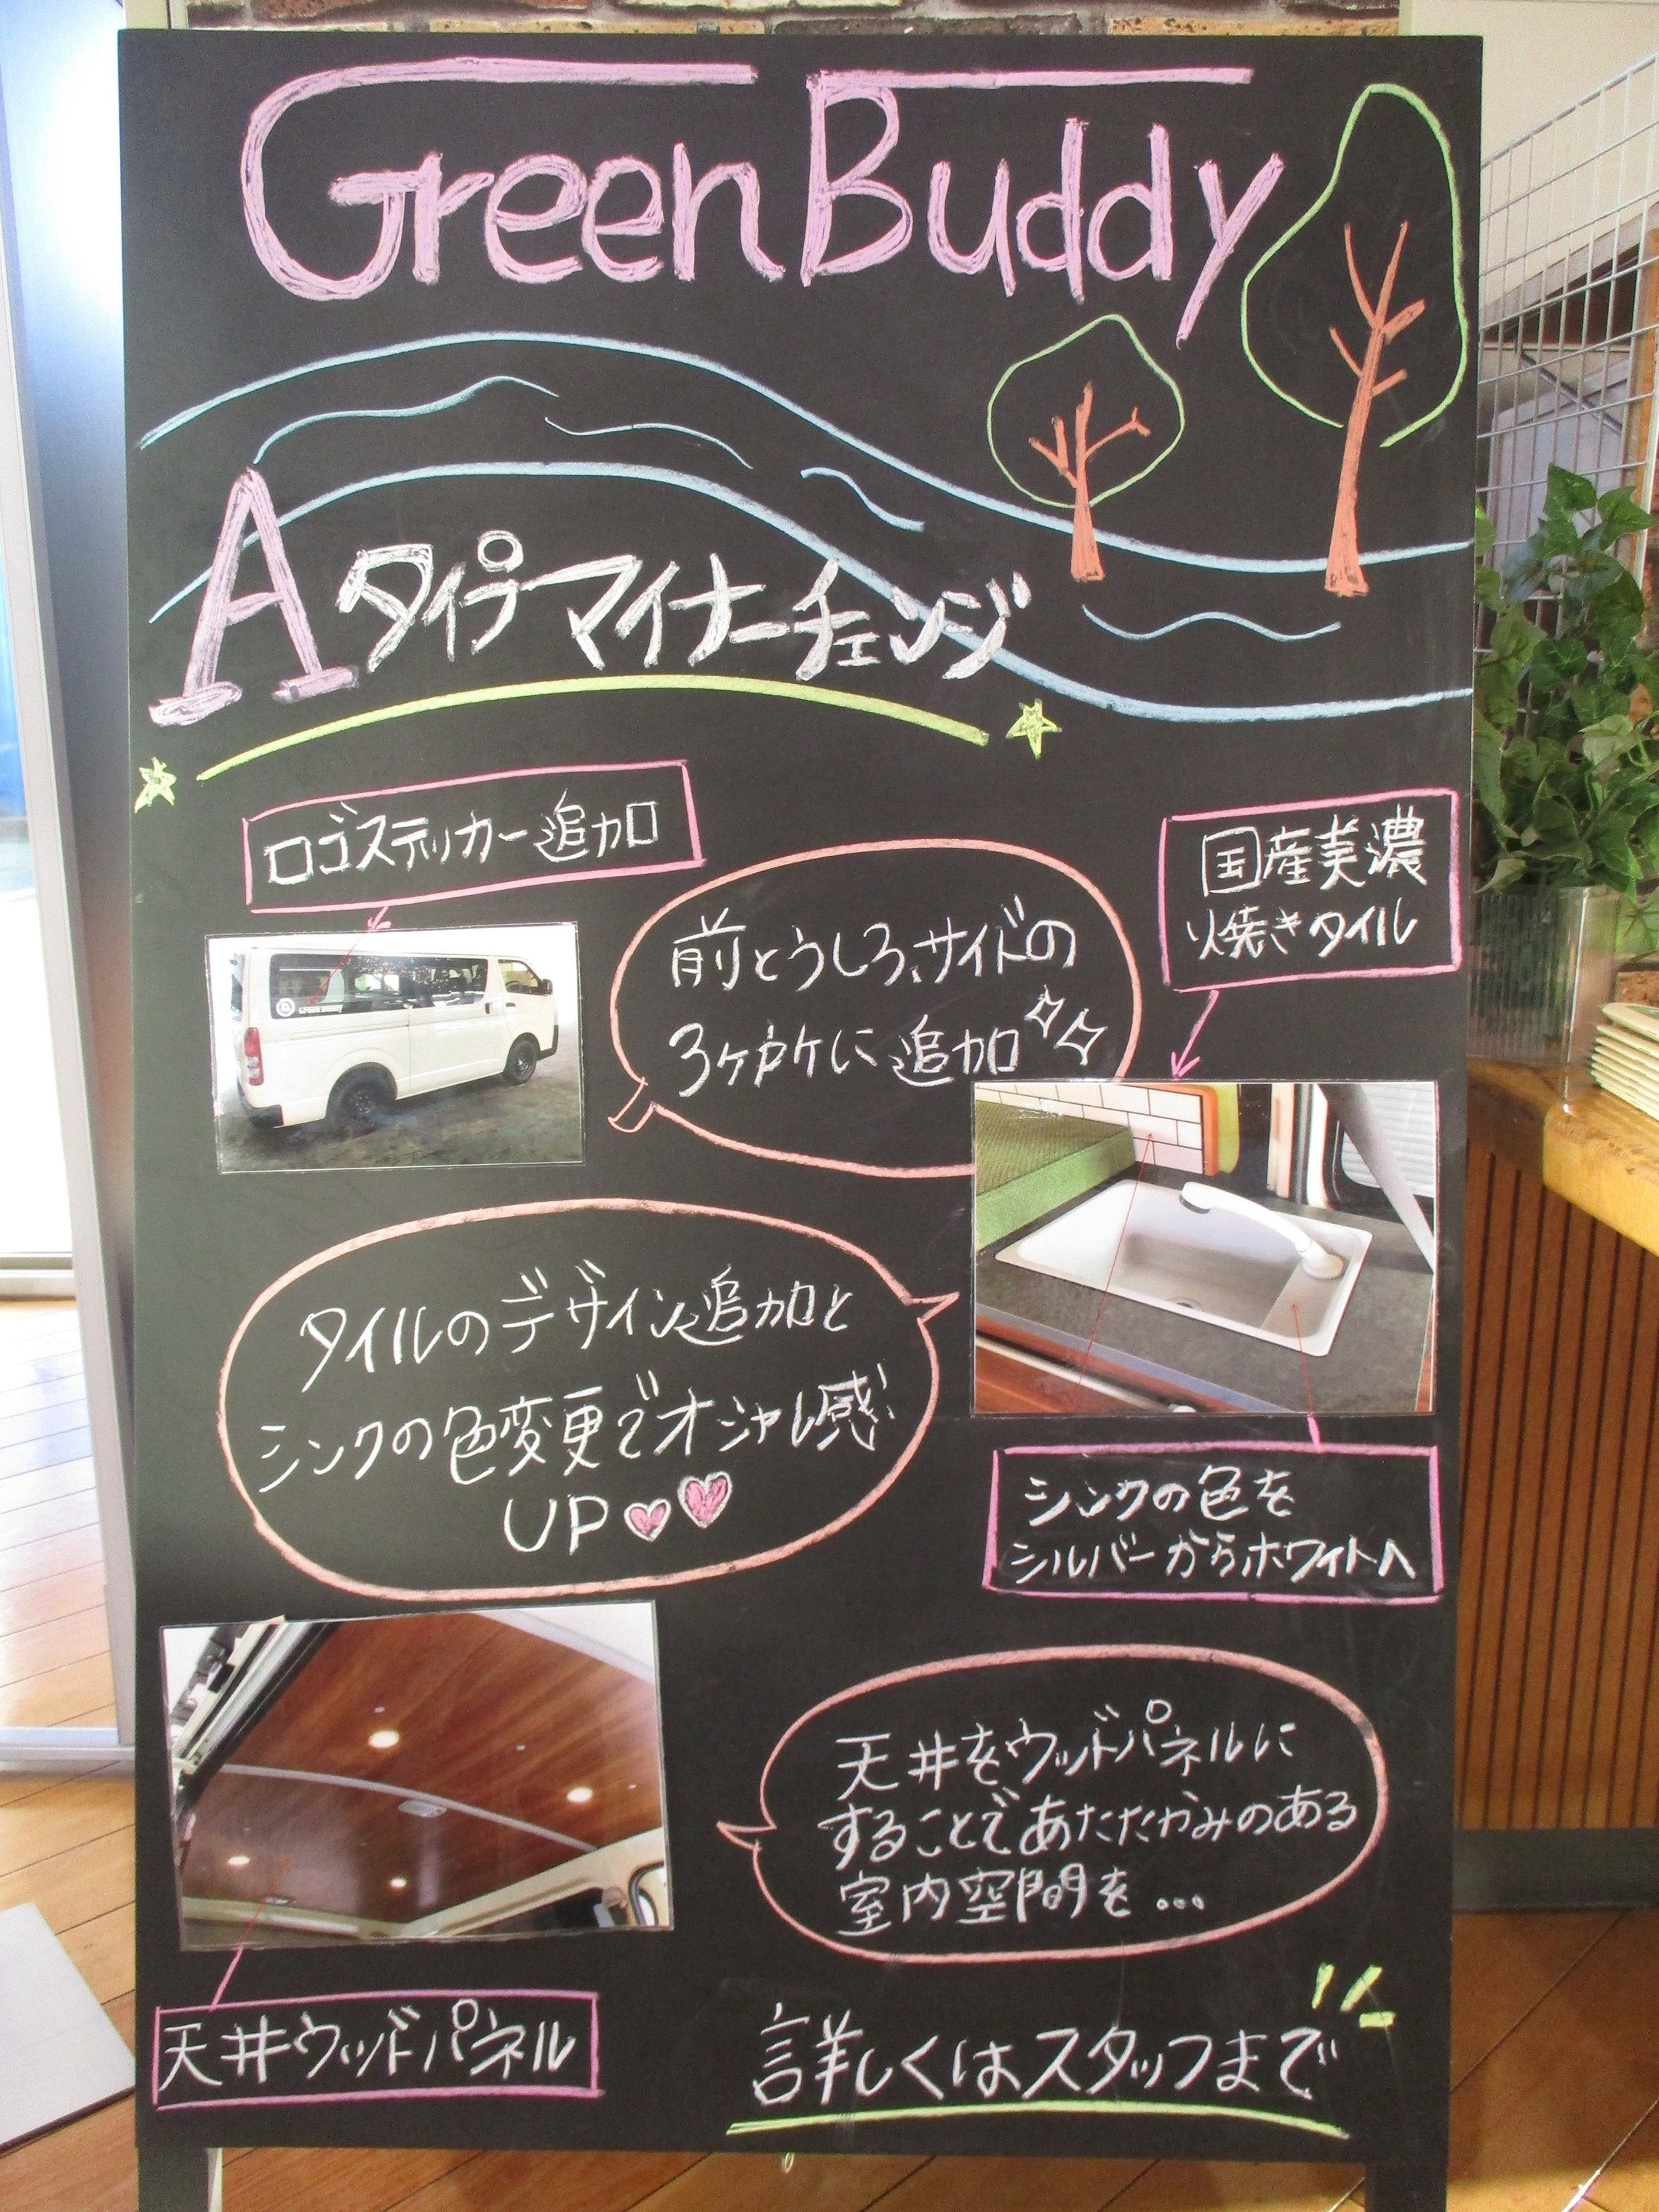 Green Buddy
Aタイプマイナーチェンジ
ロゴステッカー追加
前とうしろ、サイドの
3ヶ所に追加
国産美濃
焼きタイル
Green Buddy
タイルのデザイン追加と
シンクの色変更でオシャレ感
UP
シンクの色を
シルバーからホワイトへ
天井をウッドパネルに
することであたたかみのある
室内空間を...
天井ウッドパネル
詳しくはスタッフまで